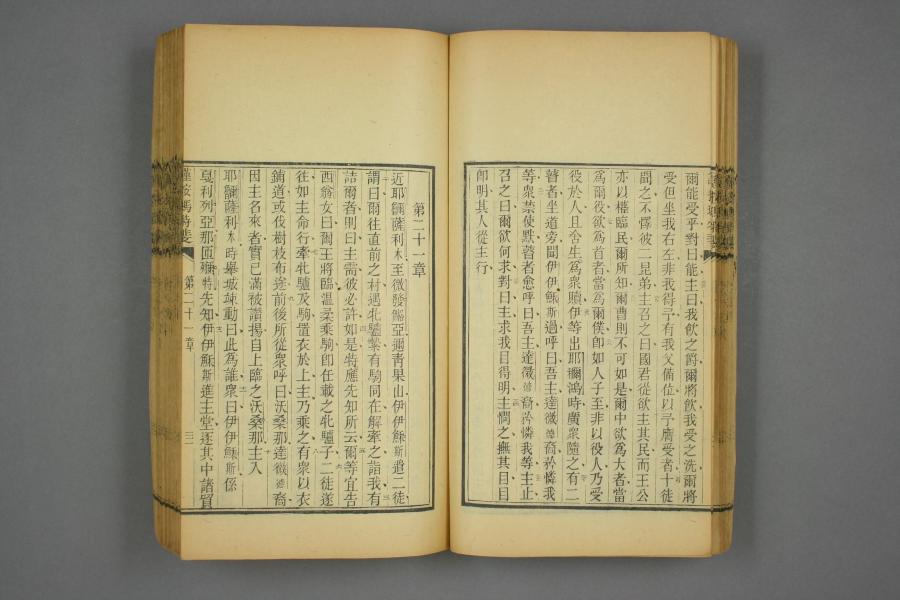 爾能受乎對曰能主曰我飲之爵爾將飲我受之洗爾將
受但坐我右左非我得予有我父備位以予膺受者十徒
聞之不懌彼二昆弟主召之曰國君從欲主其民而王公
亦以權臨民爾所知爾曹則不可如是爾中欲為大者當
為爾役欲為首者當為爾僕卽如人子至非以役人乃受
役於人且舍生為衆贖伊等出耶鴻時廣衆隨之有二
瞽者坐道旁聞伊伊穌斯過呼曰吾主達微德裔矜憐我
等衆禁使默瞽者愈呼曰吾主達微德裔矜憐我等主止
召之曰爾欲何求對曰主求我目得明主憫之撫其目目
卽明其人從主行
第二十一章
近耶薩利木至微發亞邇靑果山伊伊穌斯遣二徒
謂曰爾往直前之村遇牝驢縶有駒同在解牽之詣我有
詰爾者則曰主需彼必許如是特應先知所云爾等宜告
西翁女曰爾王將臨溫柔乘駒卽任載之牝驢子二徒遂
往如主命行牽牝驢及駒置衣於上主乃乘之有衆以衣
鋪道或伐樹枝布途前後所從衆呼曰沃桑那達微德裔
因主名來者實已滿被讚揚自上臨之沃桑那主入
耶薩利木時舉城竦動曰此為誰衆曰伊伊穌斯係
戛利列亞那先知伊伊穌斯進主堂逐其中諸貿
第二十一章